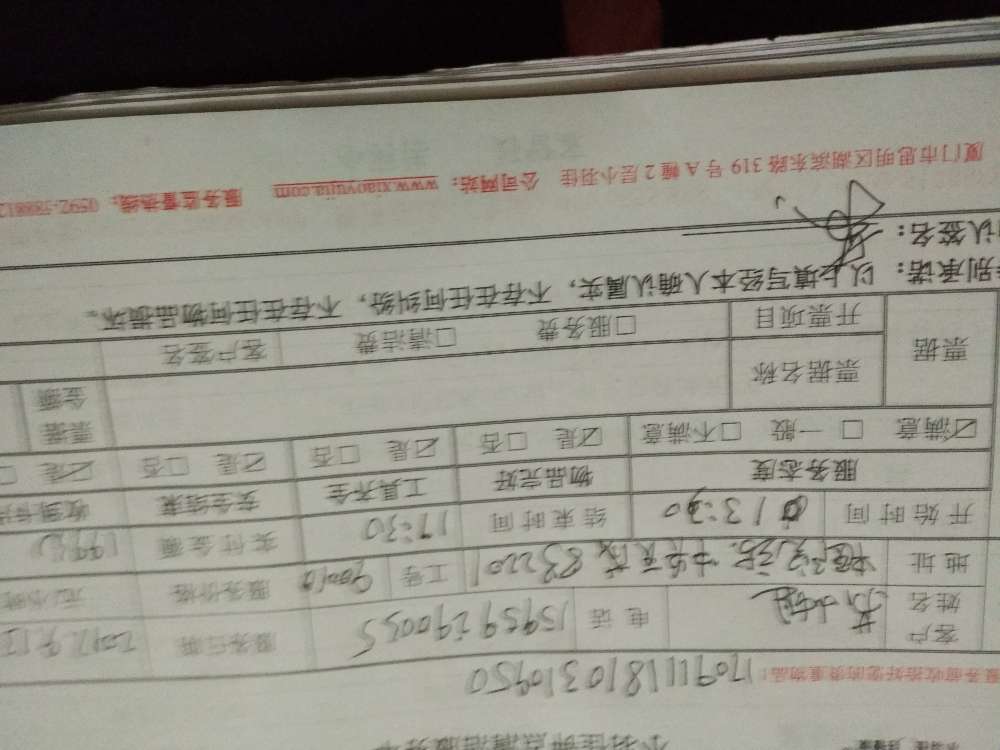 小羽佳钟点清洁服务单
服务前收拾好您的贵重物品! 1709111810310950
客户姓名 电话 15959290035 服务日期
地址 832201 工号 90010 服务价格 元/小时
开始时间 13:30 结束时间 17:30 实付金额
服务态度 物品完好 工具齐全 安全结束
☑满意 □一般 □不满意 ☑是 □否 ☑是 □否 ☑是 □否 ☑是 □
票据 票据名称 票据金额
开票项目 □服务费 □清洁费 客户签名
别承诺：以上填写经本人确认属实，不存在任何纠纷，不存在任何物品损坏。
认签名：
厦门市思明区湖滨东路 319 号 A 幢 2 层小羽佳 公司网站：www.xiaoyujia.com 服务监督热线：0592-588812